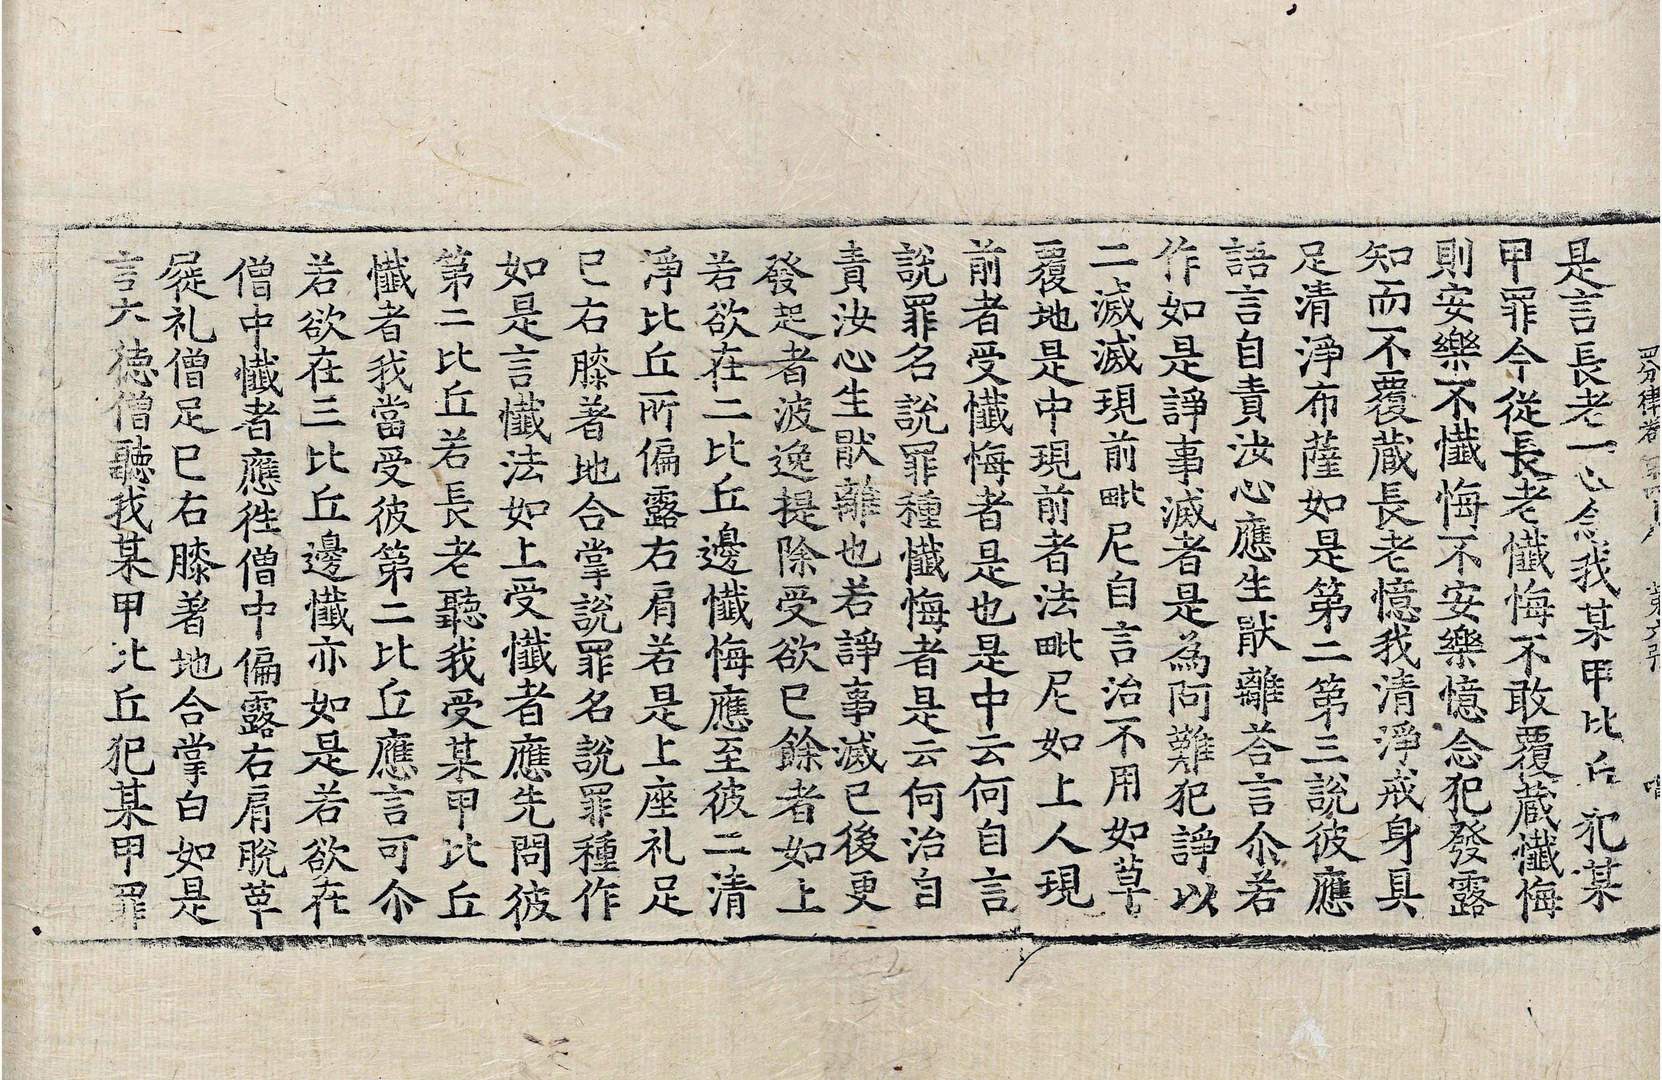 四分律卷第四十八 第六張
是言長老一心念我某甲比丘犯某
甲罪今從長老懺悔不敢覆藏懺悔
則安樂不懺悔不安樂憶念犯發露
知而不覆藏長老憶我清淨戒身具
足清淨布薩如是第二第三說彼應
語言自責汝心應生猒離荅言尒若
作如是諍事滅者是為阿難犯諍以
二滅滅現前毗尼自言治不用如草
覆地是中現前者法毗尼如上人現
前者受懺悔者是也是中云何自言
說罪名說罪種懺悔者是云何治自
責汝心生猒離也若諍事滅已後更
發起者波逸提除受欲已餘者如上
若欲在二比丘邊懺悔應至彼二清
淨比丘所偏露右肩若是上座礼足
已右膝著地合掌說罪名說罪種作
如是言懺法如上受懺者應先問彼
第二比丘若長老聽我受某甲比丘
懺者我當受彼第二比丘應言可尒
若欲在三比丘邊懺亦如是若欲在
僧中懺者應徃僧中偏露右肩脫革
屣礼僧足已右膝著地合掌白如是
言大德僧聽我某甲比丘犯某甲罪